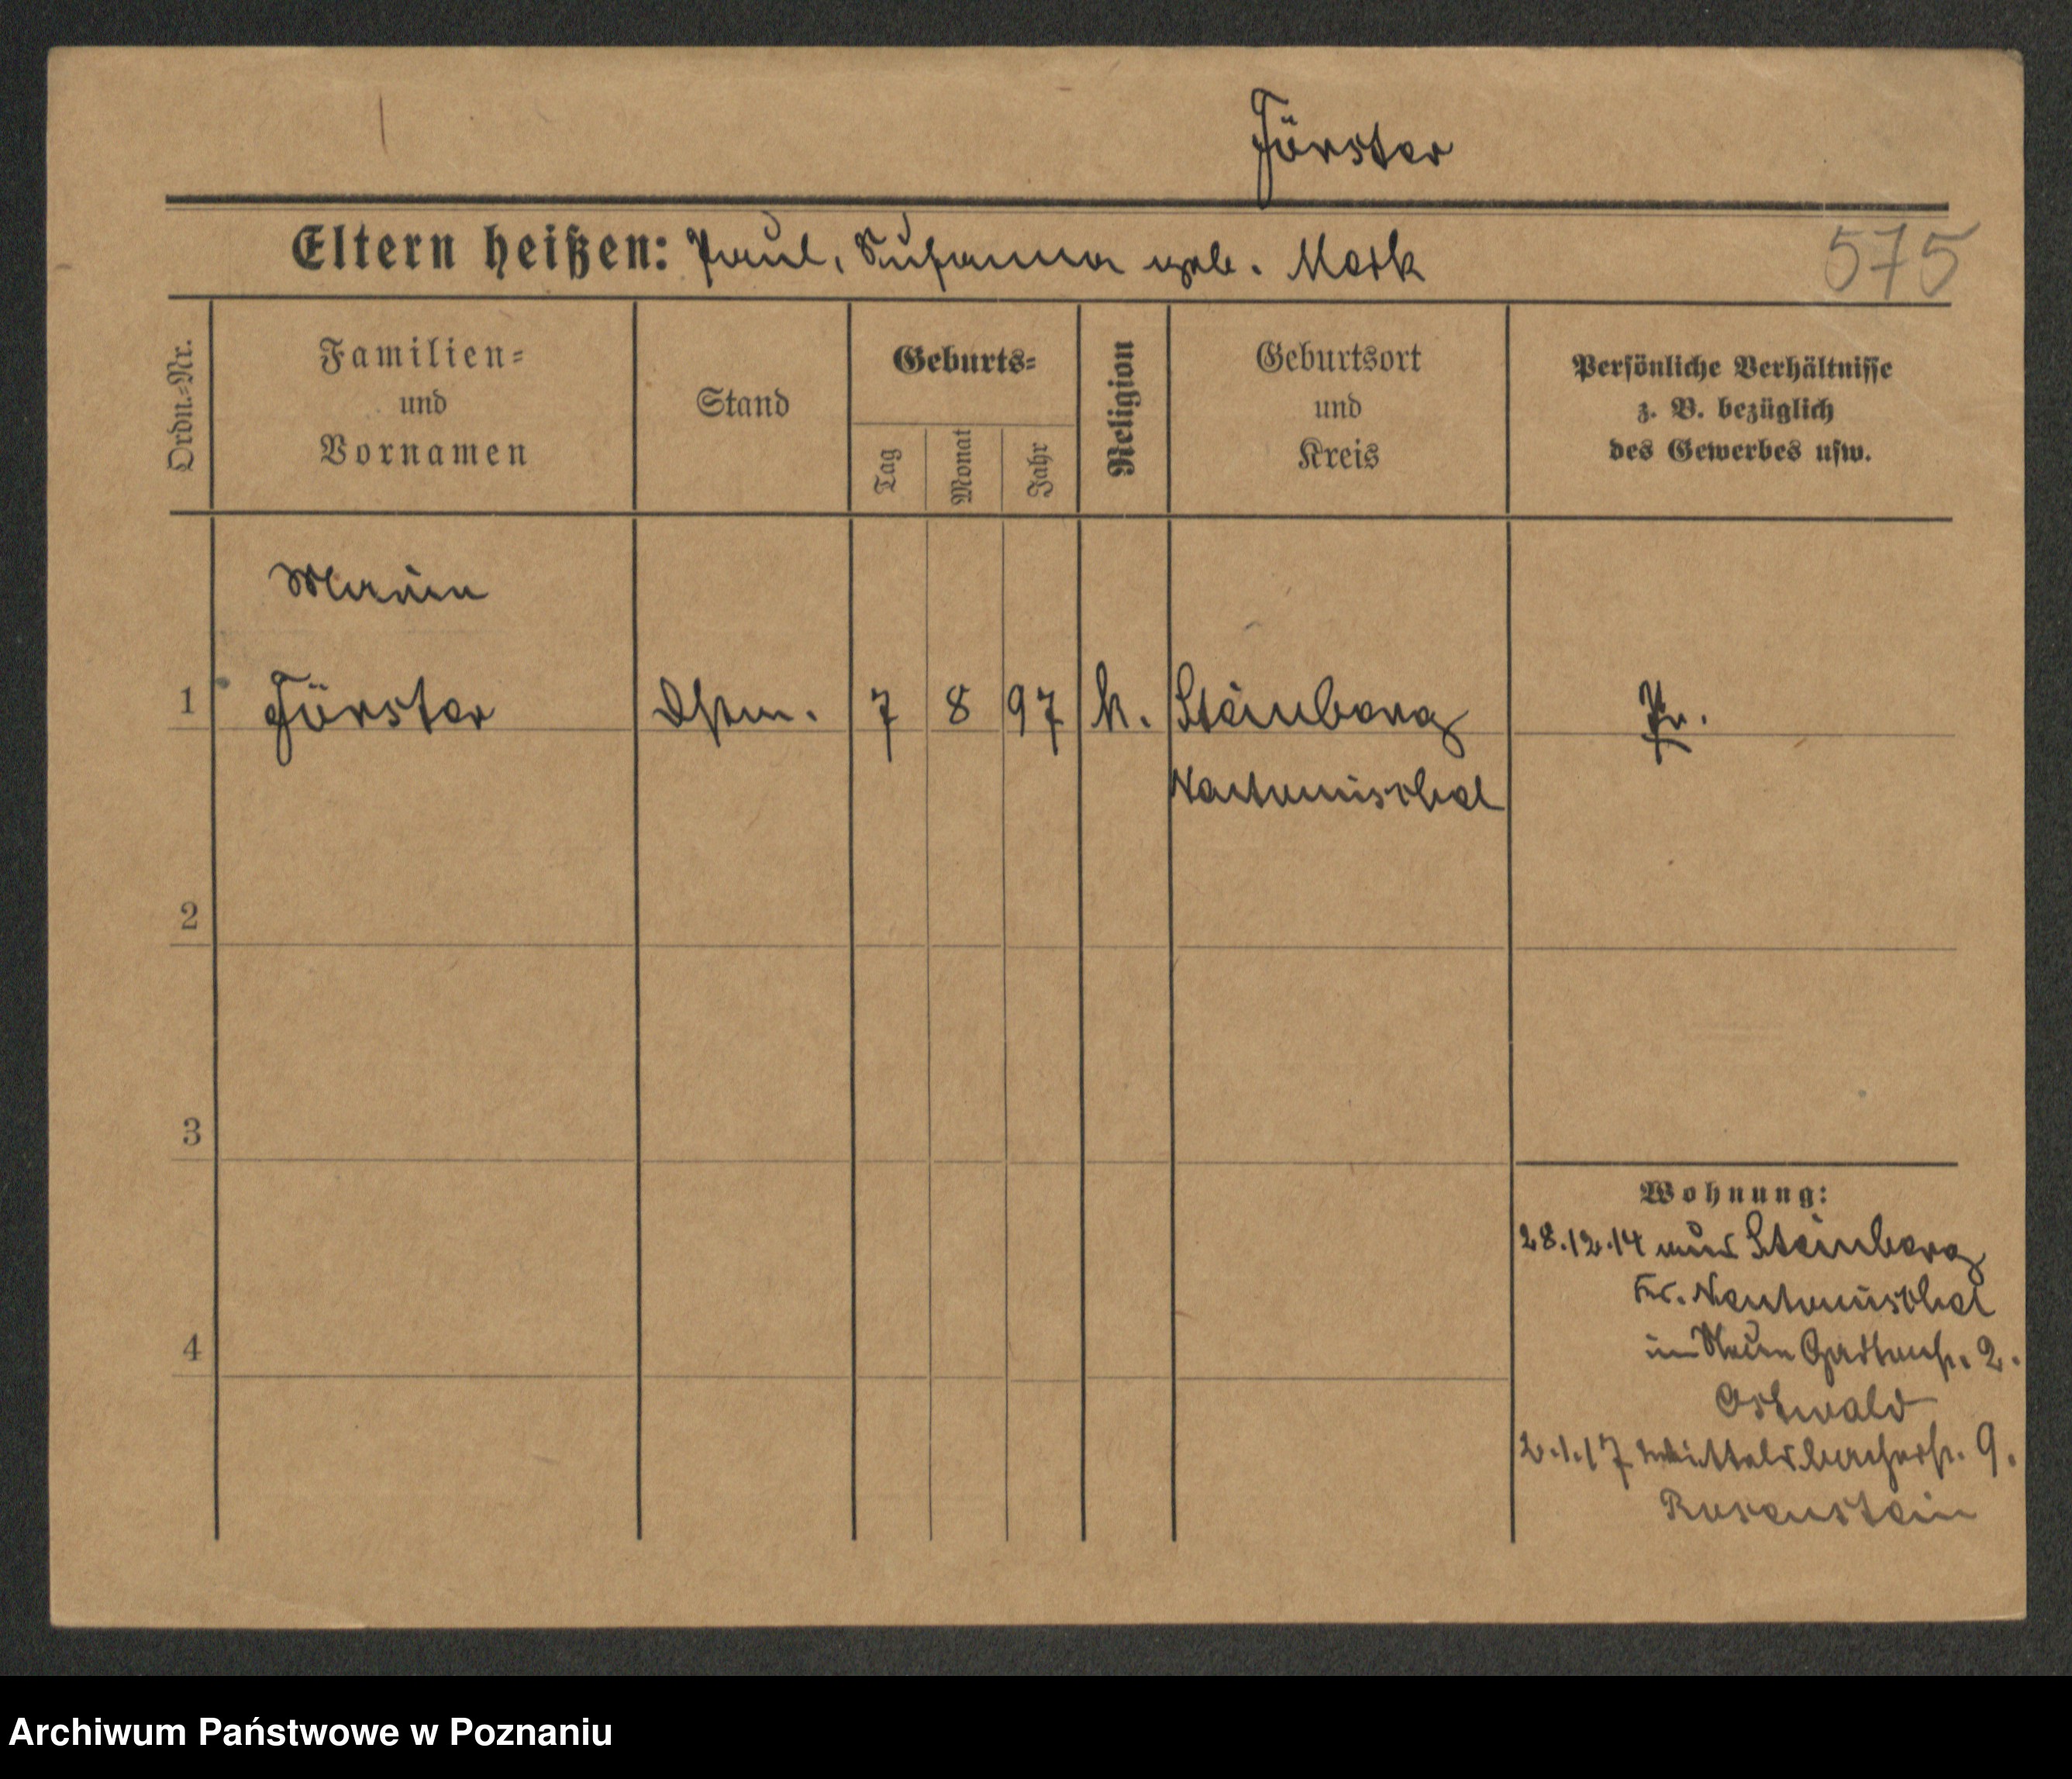 Förster
Eltern heißen: Paul, Susanna geb. Mark
575
Ordn.-Nr.
Familien-
und
Vornamen
Stand
Geburts-
Tag
Monat
Jahr
Religion
Geburtsort
und
Kreis
Persönliche Verhältnisse
z. B. bezüglich
des Gewerbes usw.
1
Maria
Förster
Dstm.
7
8
97
k.
Steinberg
Neutomischel
Pr.
2
3
4
Wohnung:
28.12.14 aus Steinberg
Kr. Neutomischel
in Neue Gartenstr. 2.
Ostwald
2.1.17 Wittelsbacherstr. 9.
Rosenstein
Archiwum Państwowe w Poznaniu